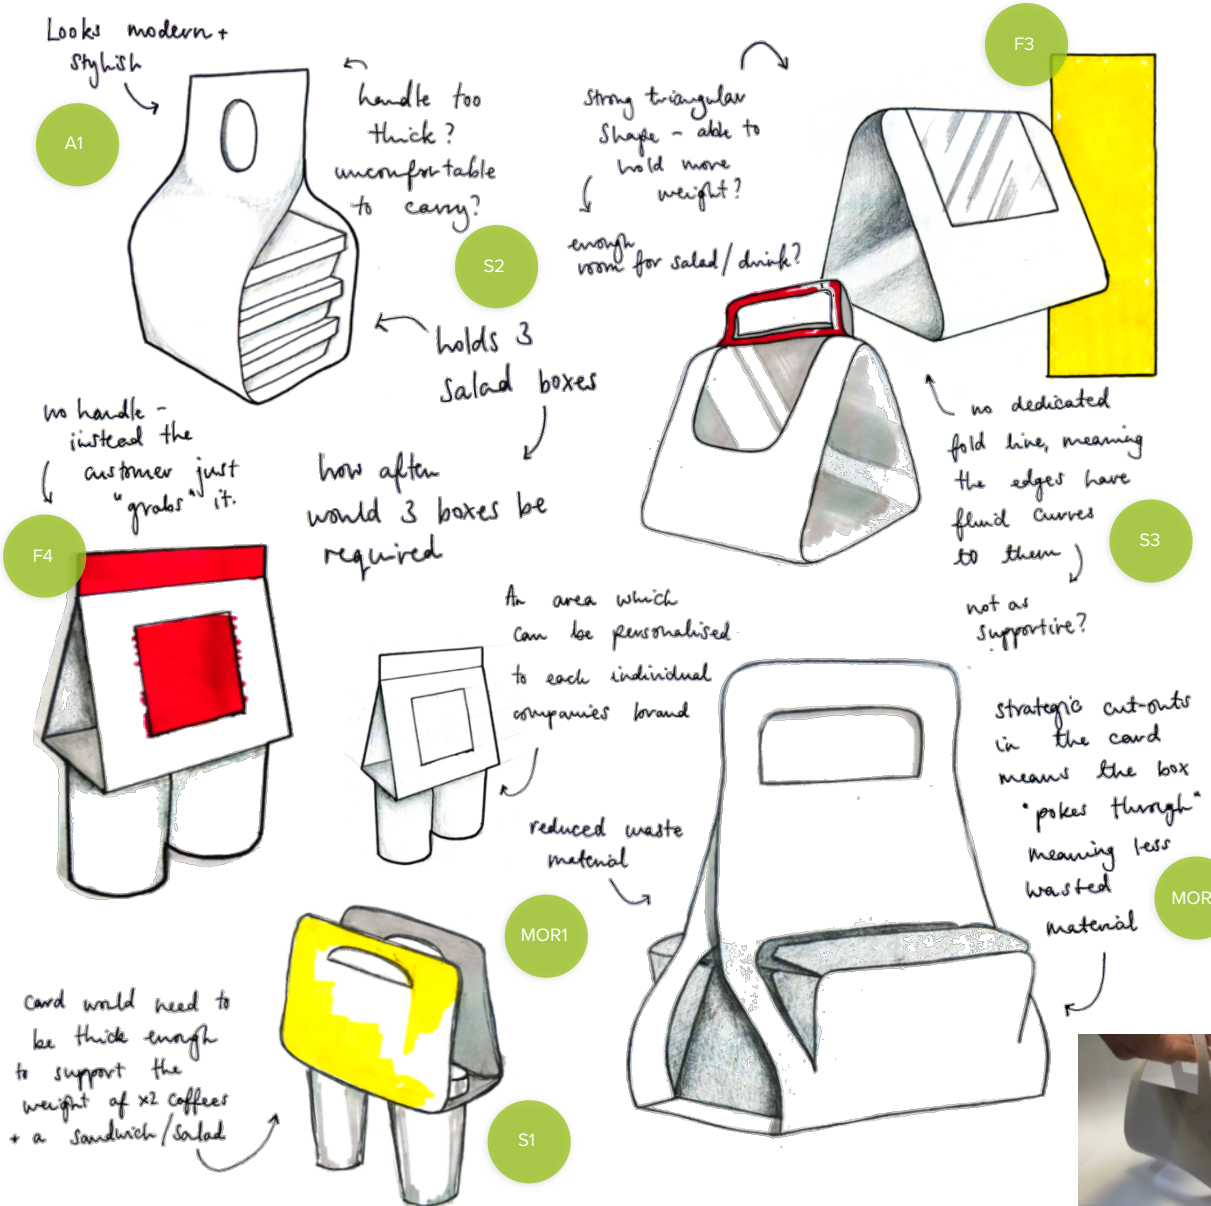 Looks modern +
stylish
A1
handle too
thick?
uncomfortable
to carry?
S2
holds 3
salad boxes
how often
would 3 boxes be
required
strong triangular
shape - able to
hold more
weight?
enough
room for salad/drink?
F3
no dedicated
fold line, meaning
the edges have
fluid curves
to them
not as
supportive?
S3
no handle -
instead the
customer just
"grabs" it.
F4
An area which
can be personalised
to each individual
companies brand
reduced waste
material
strategic cut-outs
in the card
means the box
"pokes through"
meaning less
wasted
material
MOR
MOR1
card would need to
be thick enough
to support the
weight of x2 coffees
+ a sandwich/salad
S1